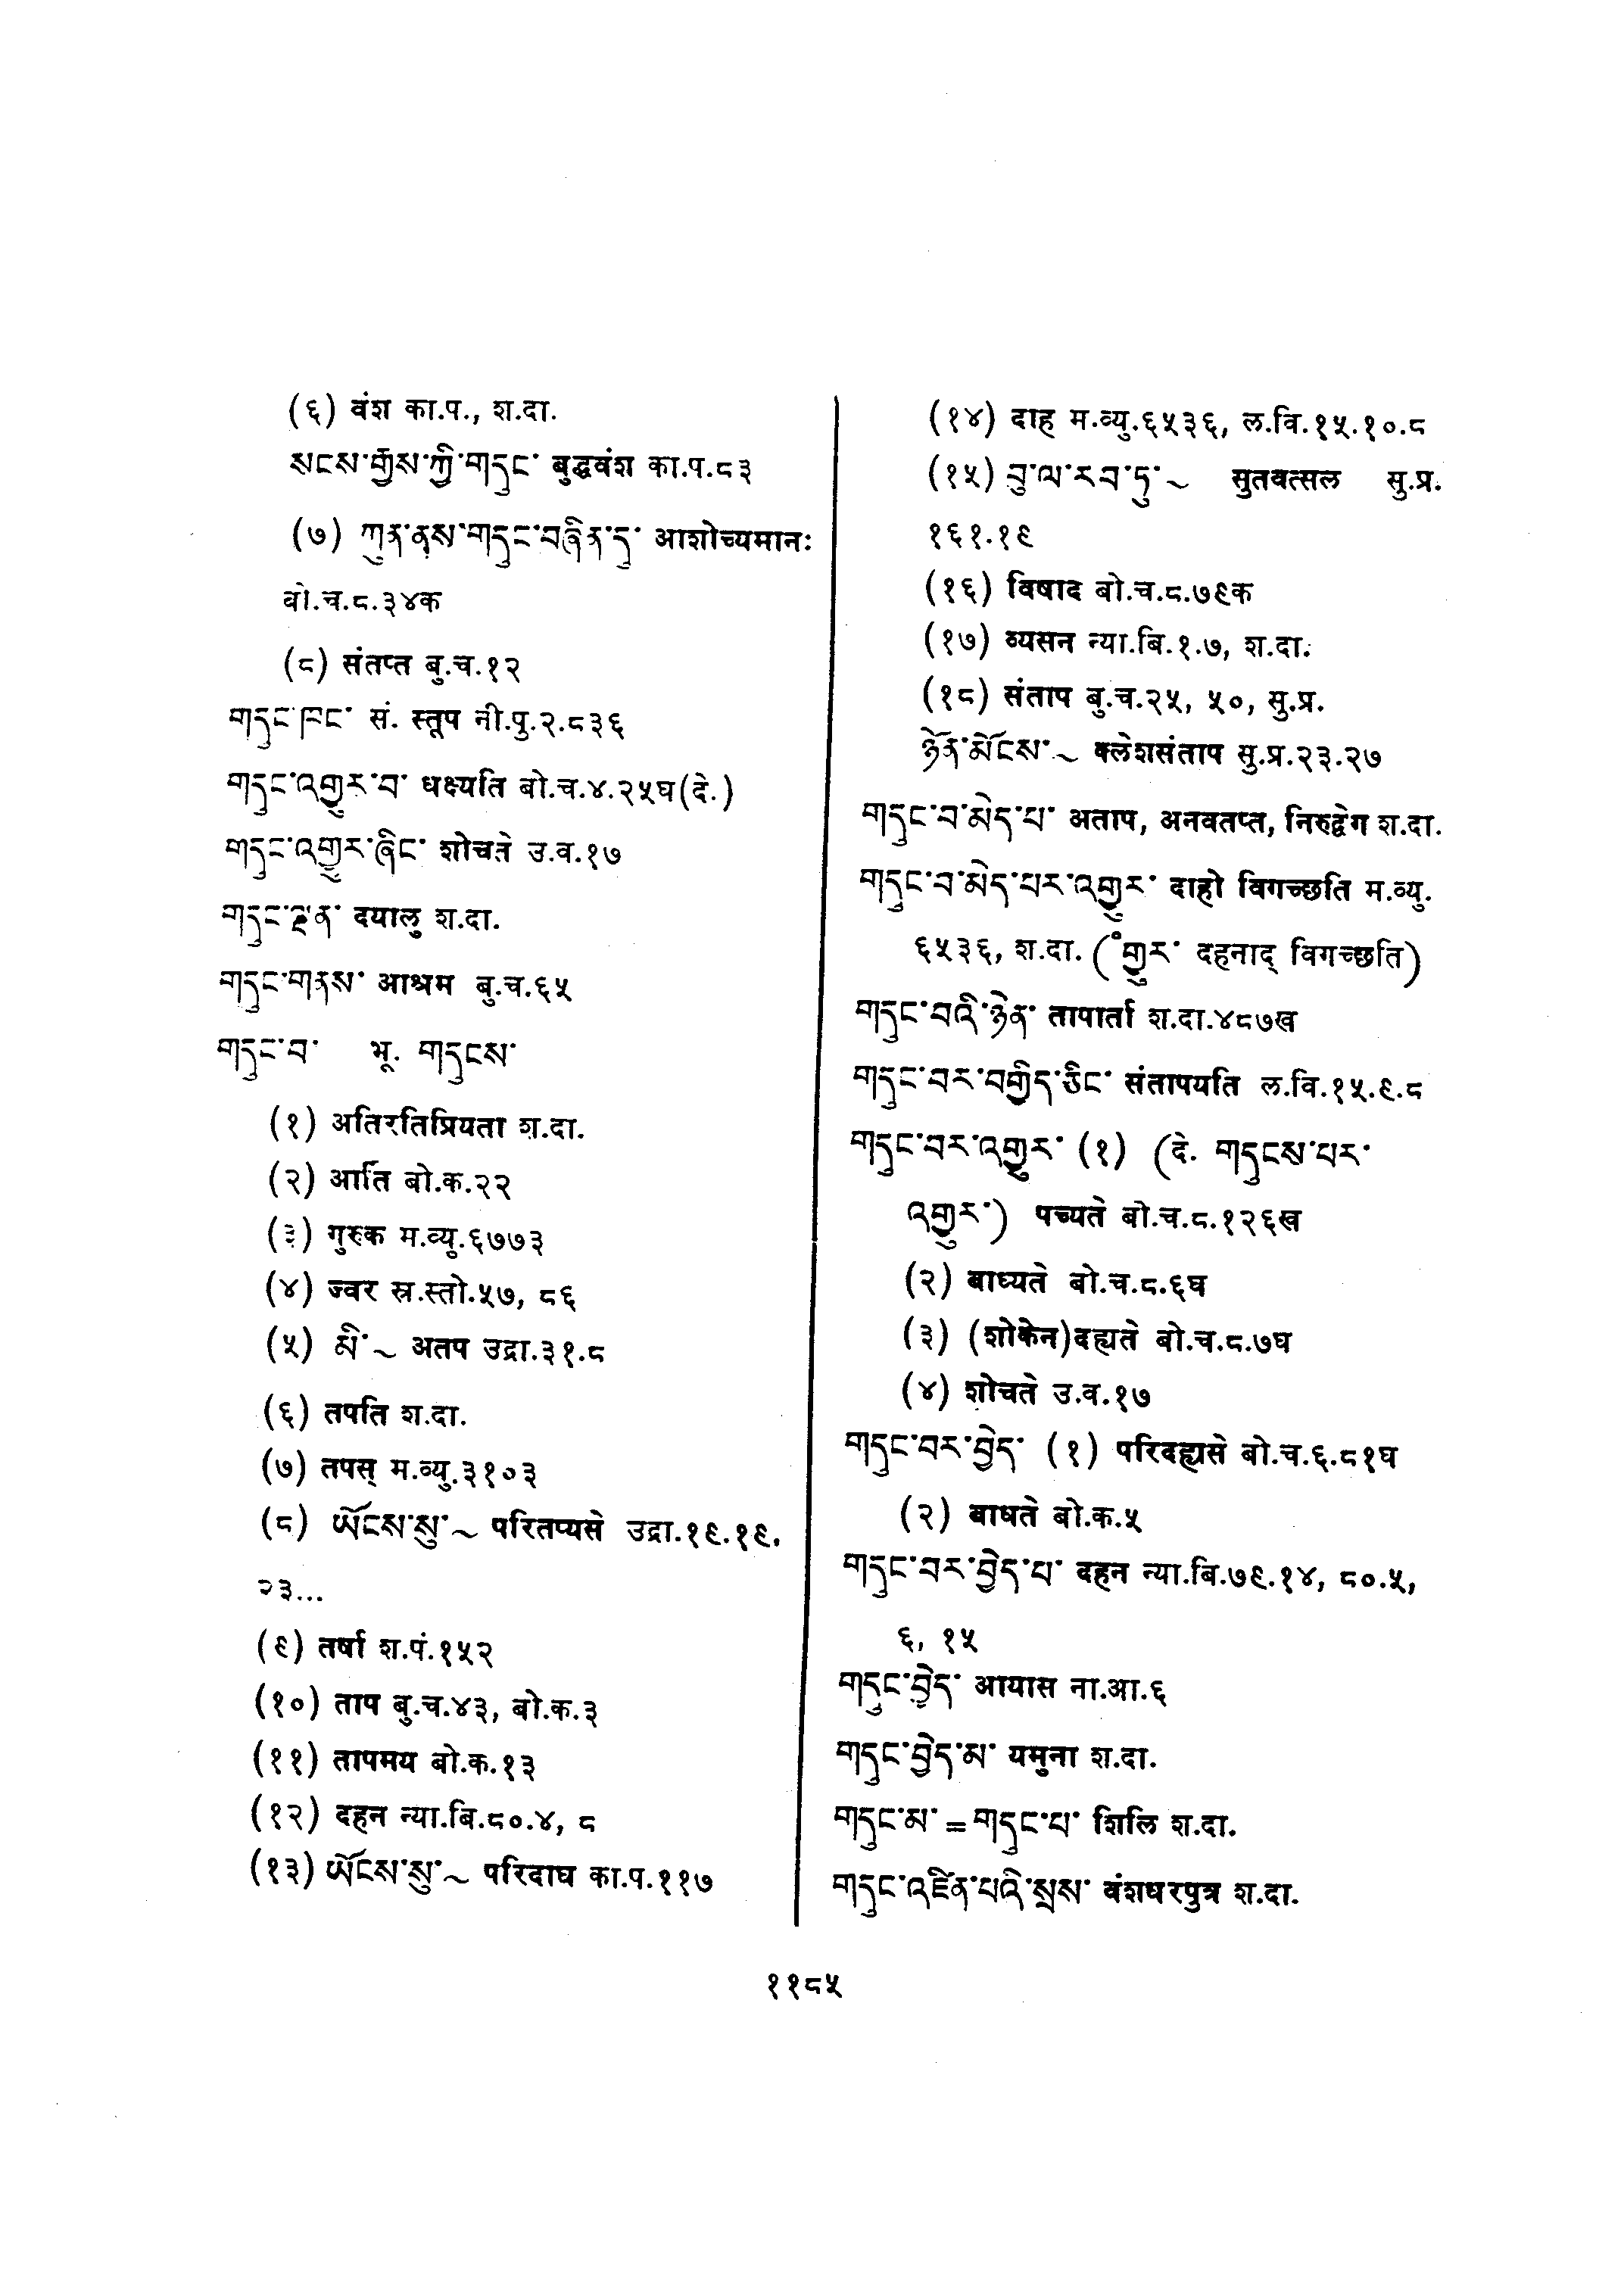 (६) वंश का.प., श.दा.
སངས་རྒྱས་ཀྱི་གདུང་ बुद्धवंश का.प.८३
(७) ཀུན་ནས་གདུང་བཞིན་དུ་ आशोच्यमानः
बो.च.८.३४क
(८) संतप्त बु.च.१२
གདུང་ཁང་ सं. स्तूप नी.पु.२.८३६
གདུང་འགྱུར་བ་ धक्ष्यति बो.च.४.२५घ(दे.)
གདུང་འགྱུར་ཞིང་ शोचते उ.व.१७
གདུང་ལྡན་ दयालु श.दा.
གདུང་གནས་ आश्रम बु.च.६५
གདུང་བ་ भू. གདུངས་
(१) अतिरतिप्रियता श.दा.
(२) आर्ति बो.क.२२
(३) गुरुक म.व्यु.६७७३
(४) ज्वर स्र.स्तो.५७, ८६
(५) མི་~ अतप उद्रा.३१.८
(६) तपति श.दा.
(७) तपस् म.व्यु.३१०३
(८) ཡོངས་སུ་~ परितप्यसे उद्रा.१९.१९.
२३...
(९) तर्षा श.पं.१५२
(१०) ताप बु.च.४३, बो.क.३
(११) तापमय बो.क.१३
(१२) दहन न्या.बि.८०.४, ८
(१३) ཡོངས་སུ་~ परिदाघ का.प.११७
(१४) दाह म.व्यु.६५३६, ल.वि.१५.१०.८
(१५) བུ་ལ་རབ་ཏུ་~ सुतवत्सल सु.प्र.
१६१.१९
(१६) विषाद बो.च.८.७९क
(१७) व्यसन न्या.बि.१.७, श.दा.
(१८) संताप बु.च.२५, ५०, सु.प्र.
ཉོན་མོངས་~ क्लेशसंताप सु.प्र.२३.२७
གདུང་བ་མེད་པ་ अताप, अनवतप्त, निरुद्वेग श.दा.
གདུང་བ་མེད་པར་འགྱུར་ दाहो विगच्छति म.व्यु.
६५३६, श.दा. (°གྱུར་ दहनाद् विगच्छति)
གདུང་བའི་ཉེན་ तापार्ता श.दा.४८७ख
གདུང་བར་བགྱིད་ཅིང་ संतापयति ल.वि.१५.९.८
གདུང་བར་འགྱུར་ (१) (दे. གདུངས་པར་
འགྱུར་) पच्यते बो.च.८.१२६ख
(२) बाध्यते बो.च.८.६घ
(३) (शोकेन)दह्यते बो.च.८.७घ
(४) शोचते उ.व.१७
གདུང་བར་བྱེད་ (१) परिदह्यसे बो.च.६.८१घ
(२) बाधते बो.क.५
གདུང་བར་བྱེད་པ་ दहन न्या.बि.७९.१४, ८०.५,
६, १५
གདུང་བྱེད་ आयास ना.आ.६
གདུང་བྱེད་མ་ यमुना श.दा.
གདུང་མ་=གདུང་པ་ शिलि श.दा.
གདུང་འཛིན་པའི་སྲས་ वंशधरपुत्र श.दा.
११८५